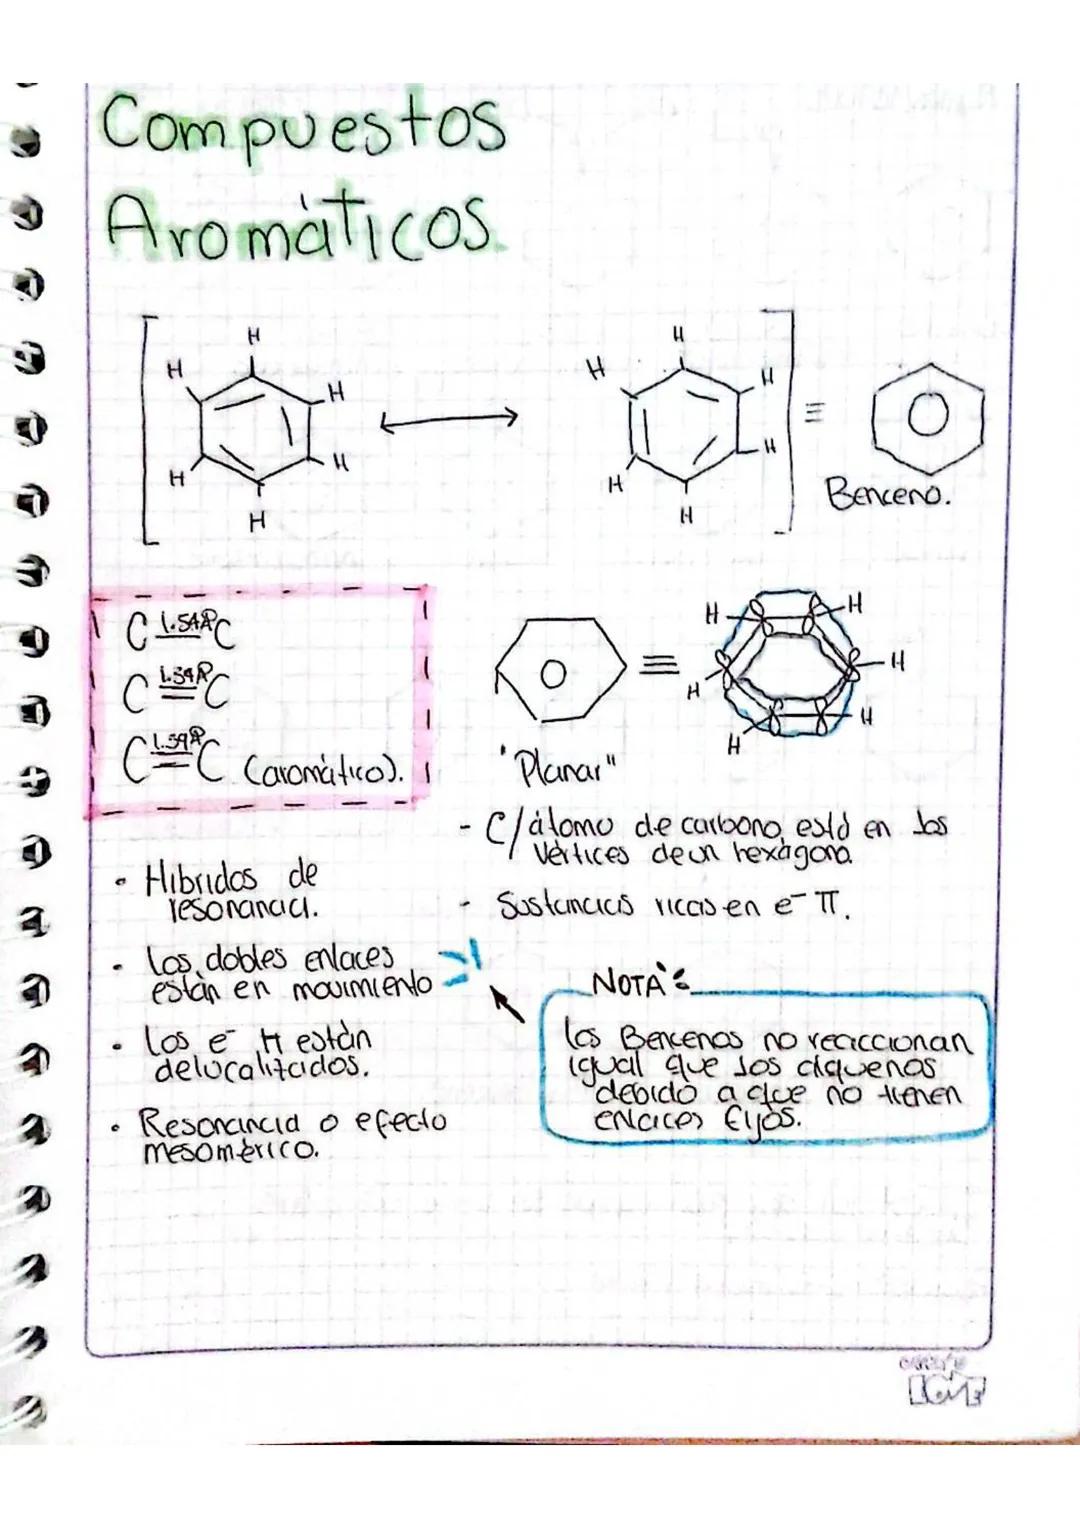 Compuestos
Aromáticos.
H
H
H
H
H
H
H
H
H
H
H
H
≡
Benceno.
C 1.54Å C
C 1.34Å C
C 1.39Å C (aromático).
≡
H
H
H
H
H
H
"Planar"
- C/átomo de carbono está en los
vértices de un hexágono
- Sustancias ricas en e⁻ π.
• Híbridos de
resonancia.
• Los dobles enlaces
están en movimiento
• Los e⁻ π están
delocalizados.
• Resonancia o efecto
mesomérico.
NOTA:
Los Bencenos no reaccionan
igual que los alquenos
debido a que no tienen
enlaces fijos.
LOVE